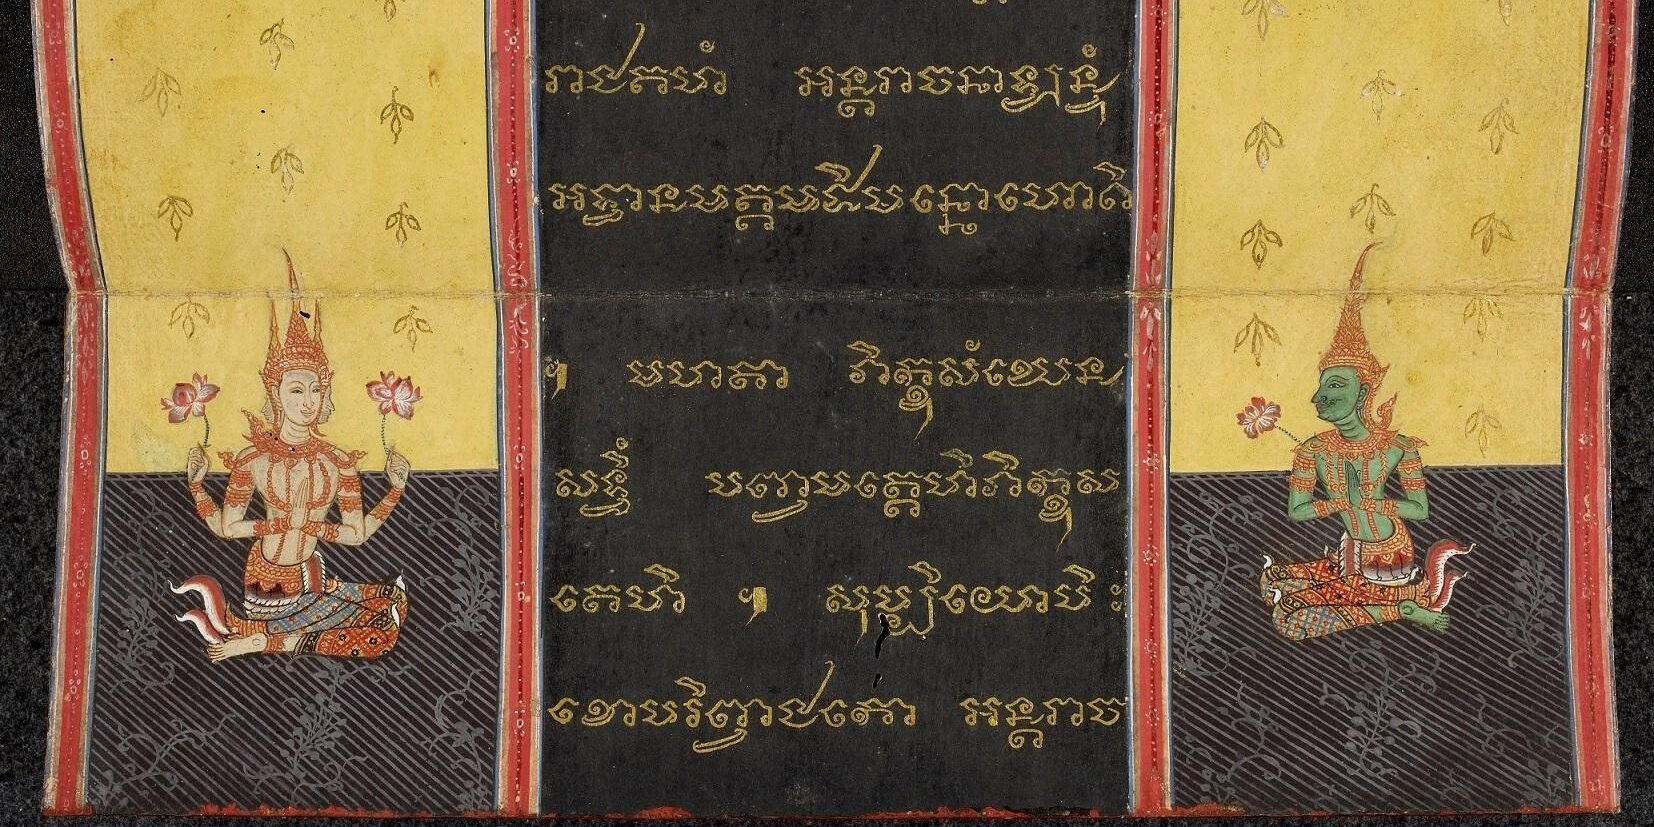 រាជគហំ អន្តរាចនាឡន្ទំ
អទ្ធានមគ្គបដិបន្នោហោតិ
។ មហតា ភិក្ខុសំឃេន
សទ្ធឹ បញ្ចមត្តេហិភិក្ខុស
តេហិ ។ សុប្បិយោបិ
ខោបរិព្វាជកោ អន្តរាច